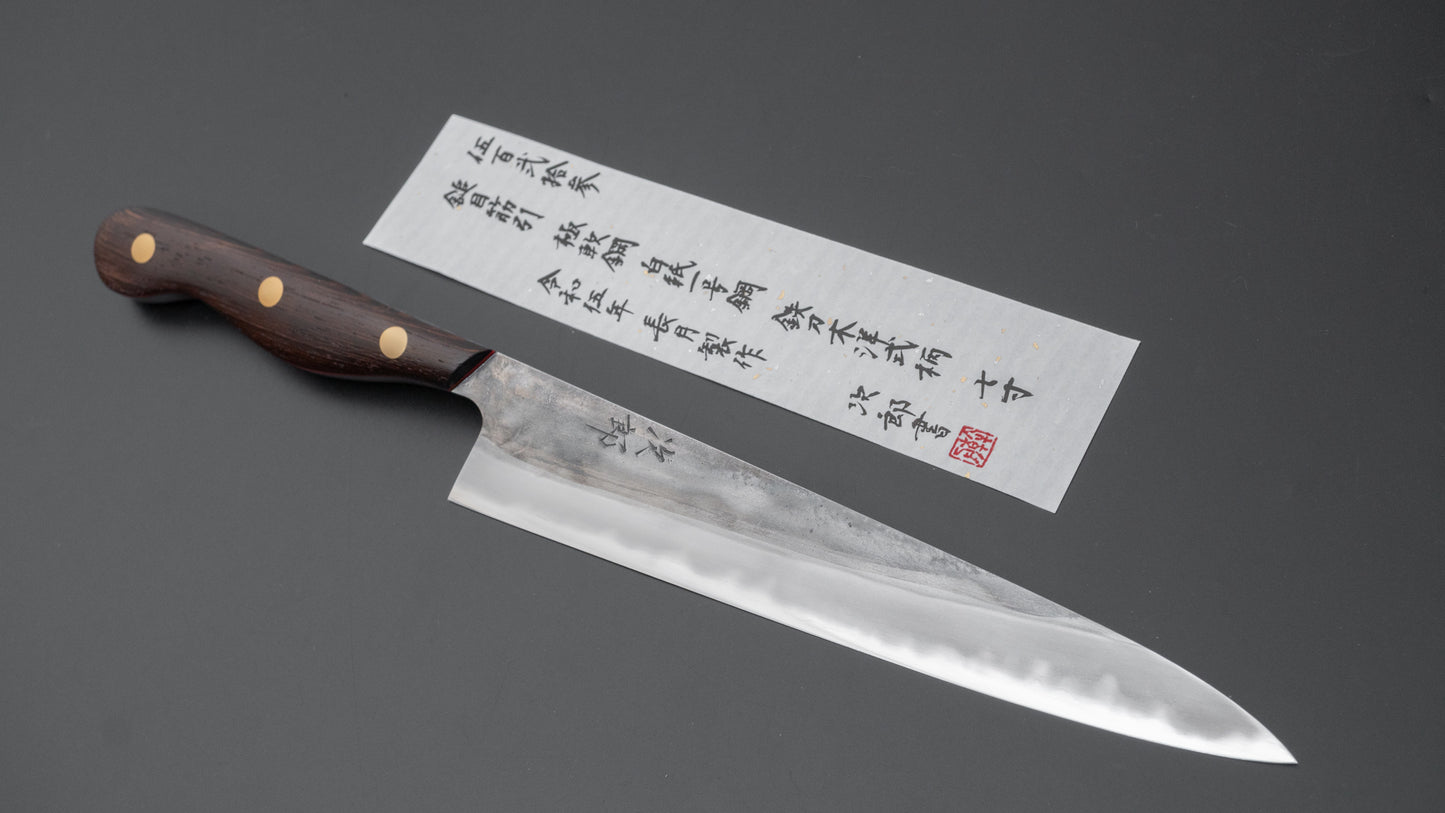 伍百弐拾参
鎚目筋引 極軟鋼 白紙一号鋼 鉄刀木洋式柄 七寸
令和伍年 長月製作
次郎書
次郎